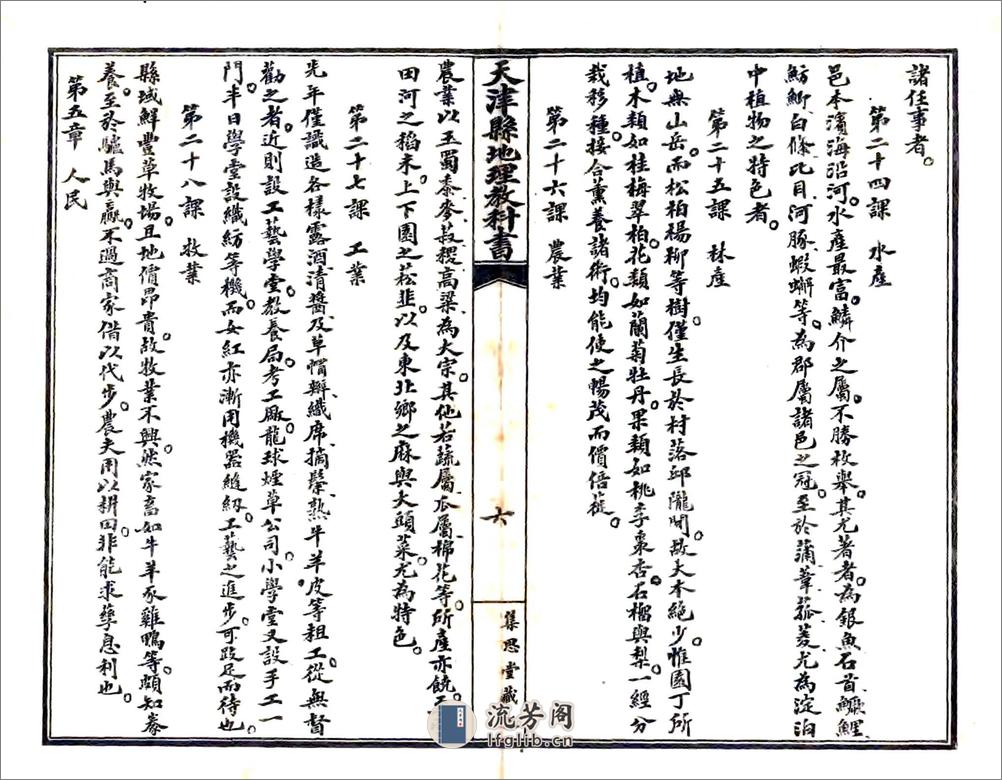 諸任事者。
第二十四課　水產
邑本濱海沿河。水產最富。鱗介之屬。不勝枚舉。其尤著者。為銀魚石首鱖鯉
魴鯽白條比目河豚蝦蠏等。為郡屬諸邑之冠。至於蒲葦菰菱尤為淀泊
中植物之特色者。
第二十五課　林產
地無山岳。而松柏楊柳等樹僅生長於村落邱隴間。故大木絕少。惟園丁所
植。木類如桂梅翠柏。花類如蘭菊牡丹。果類如桃李棗杏石榴與梨。一經分
栽移種。接合薰養諸術。均能使之暢茂而價倍蓰。
第二十六課　農業
天津縣地理教科書
六
集思堂藏
農業以玉蜀黍麥菽稷高粱為大宗。其他若蔬屬瓜屬棉花等。所產亦饒。
田河之稻米。上下園之菘韭。以及東北鄉之麻與大頭菜。尤為特色。
第二十七課　工業
先年僅識造各樣露酒清醬及草帽辮織席摘鬃熟牛羊皮等粗工。從無督
勸之者。近則設工藝學堂。教養局。考工廠。龍球煙草公司。小學堂又設手工一
門。半日學堂設織紡等機。而女紅亦漸用機器縫紉。工藝之進步。可跂足而待也。
第二十八課　牧業
縣域鮮豐草牧場。且地價昂貴。故牧業不興。然家畜如牛羊豕雞鴨等。頗知豢
養。至於驢馬與騾。不過商家借以代步。農夫用以耕田。非能求孳息利也。
第五章　人民
流芳阁
lfglib.cn